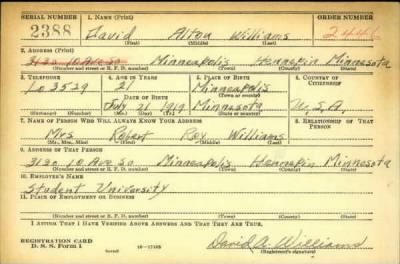 SERIAL NUMBER 1. NAME (Print) ORDER NUMBER
2388 David Alton Williams 2446
(First) (Middle) (Last)
2. ADDRESS (Print)
3130 10 Ave So Minneapolis Hennepin Minnesota
(Number and street or R. F. D. number) (Town) (County) (State)
3. TELEPHONE 4. AGE IN YEARS 5. PLACE OF BIRTH 6. COUNTRY OF CITIZENSHIP
21 Minneapolis
Lo 3529 DATE OF BIRTH (Town or county)
July 21 1919 Minnesota U.S.A.
(Mo.) (Day) (Yr.) (State or country)
7. NAME OF PERSON WHO WILL ALWAYS KNOW YOUR ADDRESS 8. RELATIONSHIP OF THAT PERSON
Mrs Robert Roy Williams
(Mr., Mrs., Miss) (First) (Middle) (Last)
9. ADDRESS OF THAT PERSON
3130 10 Ave So Minneapolis Hennepin Minnesota
(Number and street or R. F. D. number) (Town) (County) (State)
10. EMPLOYER'S NAME
Student University
11. PLACE OF EMPLOYMENT OR BUSINESS
(Number and street or R. F. D. number) (Town) (County) (State)
I AFFIRM THAT I HAVE VERIFIED ABOVE ANSWERS AND THAT THEY ARE TRUE.
REGISTRATION CARD
D. S. S. Form 1 16-17105 David A. Williams
(Registrant's signature)